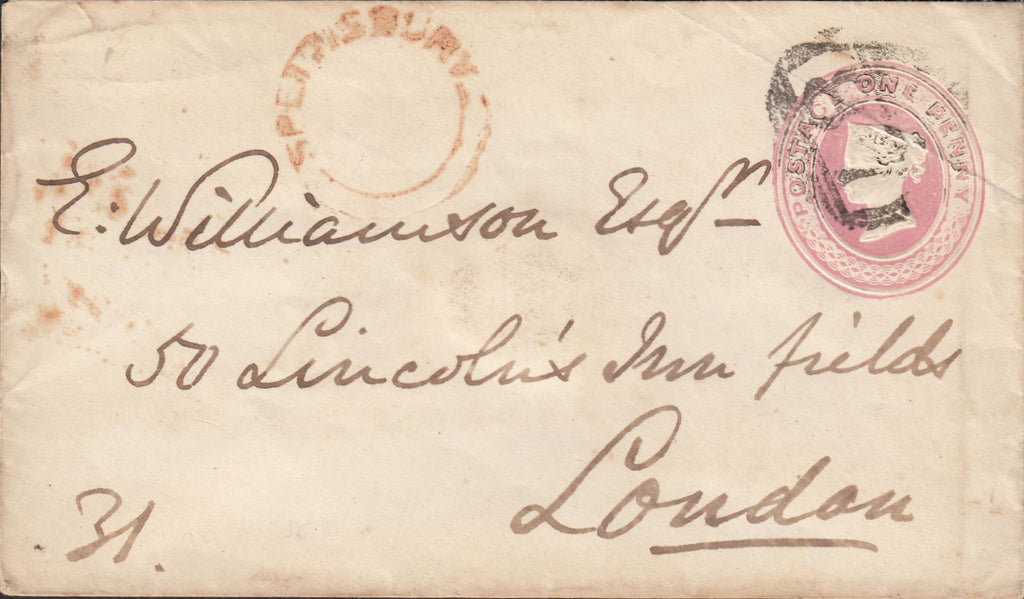 SPETTISBURY
POSTAGE ONE PENNY
E. Williamson Esqr
50 Lincoln's Inn fields
London
31.